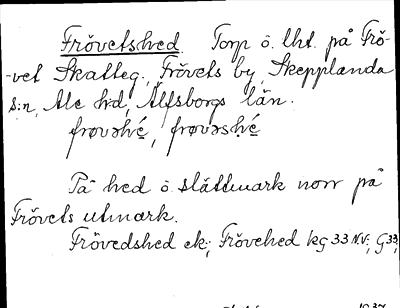 Frövetshed. Torp o. lht. på Frö-
-vet Skatteg., Frövets by, Skepplanda
s:n, Ale hd, Älfsborgs län.
frøvəhé, frøvəshé
På hed o. slättmark norr på
Frövets utmark.
Frövedshed ek; Frövehed kg 33 N.V.; G33;
1937